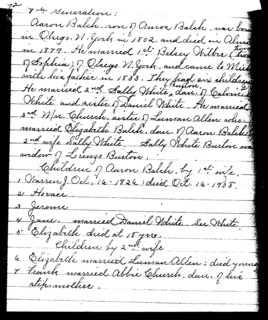 72
7th Generation:
Aaron Balch son of Aaron Balch, was born
in Otsego, N. York in 1802, and died in Almena
in 1879. He married 1st Betsey Wilbur
of Sophia, of Otsego N. York, and came to Mich
with his father in 1833. They had six children
He married 2nd Sally White Burton, dau. of Calvin
White and sister of Daniel White. He married
3rd Mrs. Church, sister of Luman Allen who
married Elizabeth Balch, dau. of Aaron Balch's
2nd wife Sally White. Sally White Burton was
widow of Lorenzo Burton.
Children of Aaron Balch, by 1st wife,
1 Warren J. Oct. 14-1826: died Oct. 14-1905.
2 Horace
3 Jerome
4 Jane. married Daniel White. See White.
5 Elizabeth died at 18 yrs.
Children by 2nd wife
6 Elizabeth married Luman Allen; died young
7 Frank married Abbie Church, dau. of his
step mother.